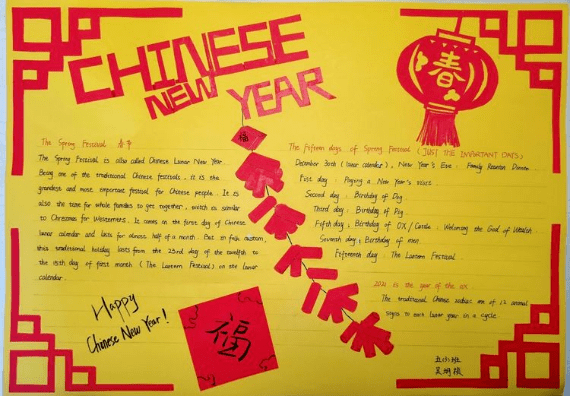 CHINESE
NEW YEAR
春
福
The Spring Festival 春节
The Spring Festival is also called Chinese Lunar New Year.
Being one of the traditional Chinese festivals, it is the
grandest and most important festival for Chinese people. It is
also the time for whole families to get together, which is similar
to Christmas for Westerners. It comes on the first day of Chinese
lunar calendar and lasts for almost half of a month. But in folk custom,
this traditional holiday lasts from the 23rd day of the twelfth to
the 15th day of first month (The Lantern Festival) in the lunar
calendar.
The fifteen days of Spring Festival (JUST THE IMPORTANT DAYS)
December 30th (lunar calendar), New Year's Eve: Family Reunion Dinner.
First day: Paying a New Year's visit
Second day: Birthday of Dog
Third day: Birthday of Pig
Fifth day: Birthday of OX / Cattle: Welcoming the God of Wealth
Seventh day: Birthday of men
Fifteenth day: The Lantern Festival
2021 is the year of the ox
The traditional Chinese zodiac use of 12 animal
signs to each lunar year in a cycle.
Happy
Chinese New Year!
福